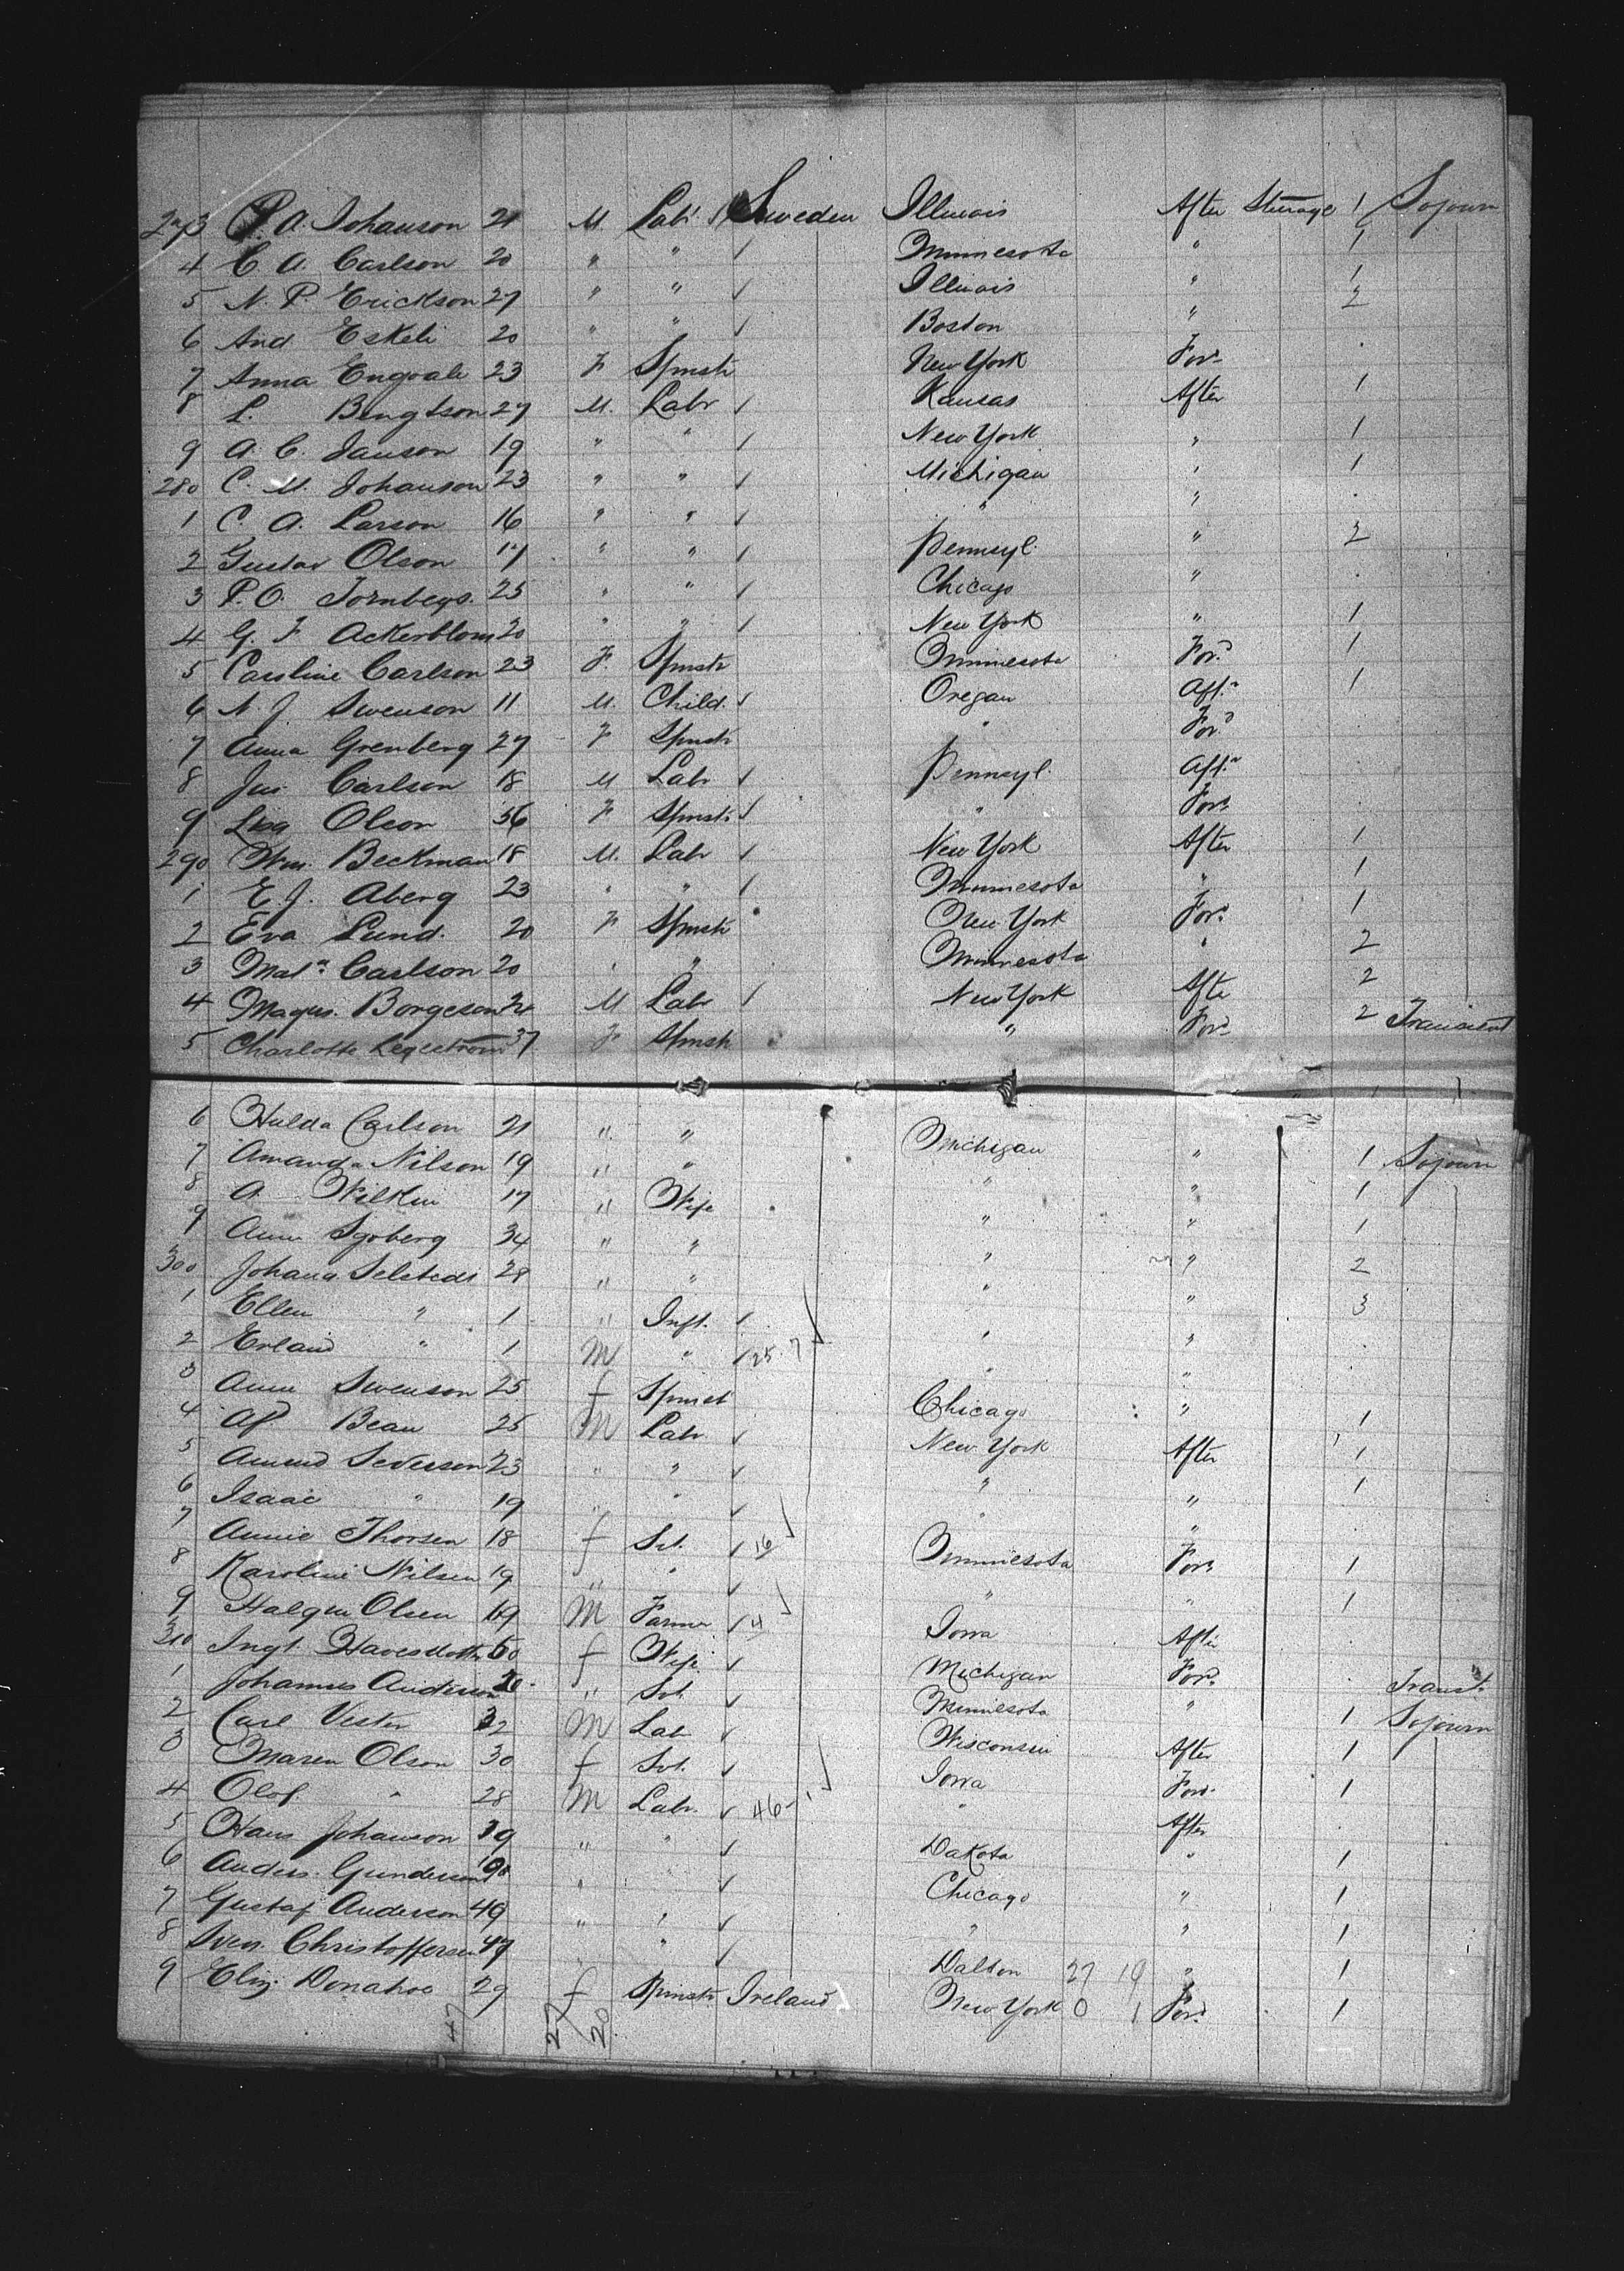 273 P. A. Johanson 21 M. Labr Sweden Illinois After Sturage 1 Sojourn
4 C A. Carlson 20 " " Minnesota " 1
5 N. P. Erickson 27 " " Illinois " 1
6 And Eskeli 20 " " Boston " 2
7 Anna Engvall 23 F Spinstr New York For.
8 L. Bengtson 27 M. Labr Kansas After 1
9 A. C. Janson 19 " " New York " 1
280 C. M. Johanson 23 " " Michigan " 1
1 C. A. Larson 16 " " " "
2 Gustav Olson 17 " " Pennsyl. " 2
3 P. O. Tornbego. 25 " " Chicago "
4 G. F Ackerblom 20 " " New York " 1
5 Caroline Carlson 23 F. Spinstr Minnesota For.d 1
6 N J. Swenson 11 M. Child. Oregan Aft.r 1
7 Anna Grenberg 27 F Spinstr " For.d
8 Jas. Carlson 18 M Labr Pennsyl. Aft.r
9 Lisa Olson 36 F Spinstr " For.d
290 Wm. Beckman 18 M. Labr New York After 1
1 E. J. Aberg 23 " " Minnesota " 1
2 Eva Lund. 20 F Spinstr New York For.d 1
3 Mat.a Carlson 20 " " Minnesota " 2
4 Magus. Borgeson 24 M Labr New York Afte 2
5 Charlotte Legestrom 37 F Spinstr " For.d 2 Transient
6 Hulda Carlson 21 " " Michigan " 1 Sojourn
7 Amanda Nilson 19 " " " " 1
8 A. Wilkin 17 " Wife " " 1
9 Ann Sjoberg 34 " " " " 2
300 Johana Selstedt 28 " " " " 3
1 Ellen " 1 " Inft. " "
2 Erland " 1 M " 25 7 " "
3 Ann Swenson 25 f Spinst Chicago " 1
4 Af Bean 25 M Labr New York After 1
5 Amund Severson 23 " " " " 1
6 Isaac " 19 " " " "
7 Annie Thorsen 18 f Svt. 16 Minnesota For.d 1
8 Karoline Nilsen 19 " " " " 1
9 Halqui Olsen 69 M Farmer 4 Iowa After
310 Ingt. Haresdottr 60 f Wife Michigan For.d Transt.
1 Johannes Anderson 20 " Svt. Minnesota " 1 Sojourn
2 Carl Vester 32 M Lab Wisconsin After 1
3 Maren Olson 30 f Svt. Iowa For.d 1
4 Olof " 28 M Labr. 46 " After
5 Hans Johanson 39 " " Dakota " 1
6 Anders. Gunderson 19 " " Chicago " 1
7 Gustaf Anderson 49 " " " " 1
8 Sven. Christoffersen 47 " " Dalton 27 19 " 1
9 Eliz. Donahoe 29 f Spinstr Ireland New York 0 1 For.d 1
47 27/20